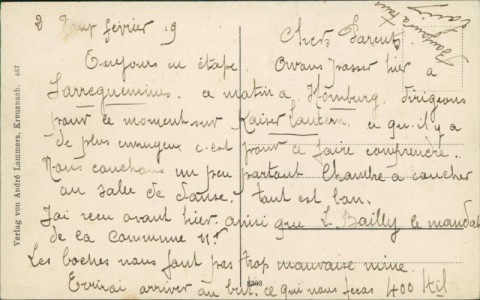 2 févrierr 19
Chers Parents
Toujours en étape. Avons passer hier a
Sarreguemines. ce matin a Homburg. dirigeons
pour ce moment sur Kaiserlautern. ce qu'il y a
de plus ennuyeux c'est pour ce faire comprendre.
Nous couchons un peu partout Chambre a coucher
au salle de danse. tout est bon.
J'ai recu avant hier ainsi que L. Bailly le mandat
de la commune
Les boches nous font pas trop mauvaise mine.
arriver au but. ce qui nous feras 400 Kil
Verlag von André Lammers, Kreuznach. 467